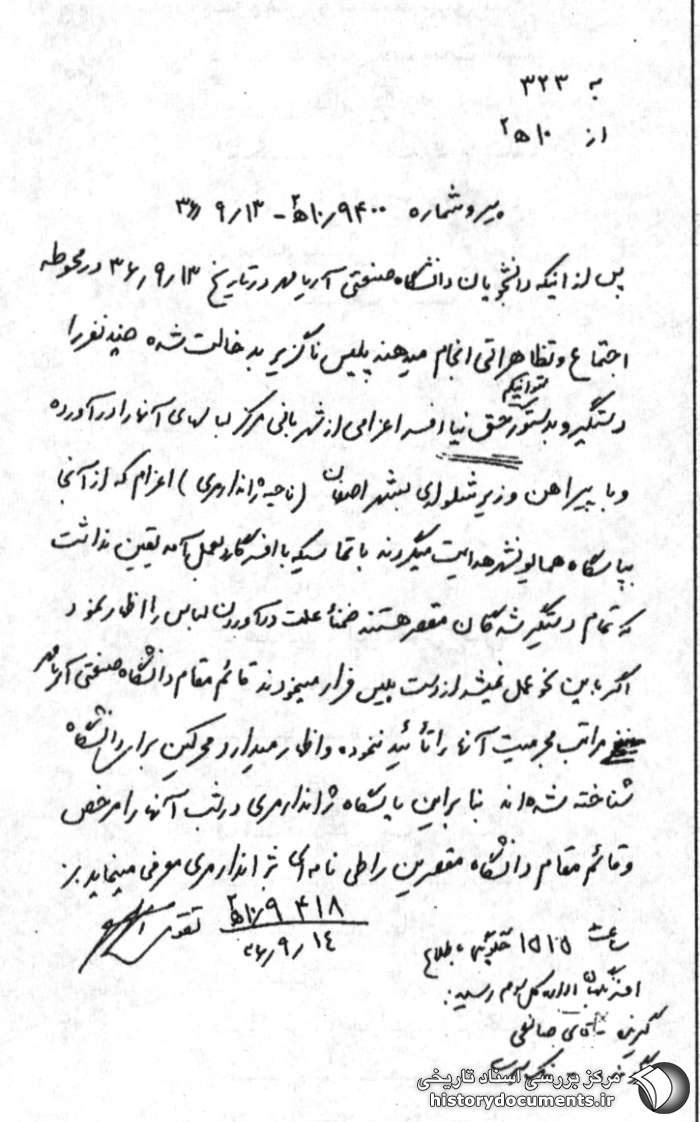 به ۳۲۳
از ۱۰ه۲
پیرو شماره ۱۰/۹۴۰۰ه۲ - ۳۶/۹/۱۳
پس از اینکه دانشجویان دانشگاه صنعتی آریامهر در تاریخ ۳۶/۹/۱۳ در محوطه
اجتماع و تظاهراتی انجام میدهند پلیس ناگزیر به دخالت شده چند نفر را
دستگیر و بدستور ستوانیکم حق نیا افسر اعزامی از شهربانی مرکز لباسهای آنها را درآورده
و با پیراهن و زیرشلواری بشهر اصفهان (ناحیه ژاندارمری) اعزام که از آنجا
بپاسگاه همایونشهر هدایت میگردند با تماسیکه با افسر گارد بعمل آمد یقین نداشت
که تمام دستگیر شدگان مقصر هستند ضمناً علت درآوردن لباس را اظهار نمود
اگر باین نحو عمل نمیشد از دست پلیس فرار مینمودند قائم مقام دانشگاه صنعتی آریامهر
مراتب مجرمیت آنها را تأئید ننموده و اظهار میدارد محرکین برای دانشگاه
شناخته شده‌اند بنابراین پاسگاه ژاندارمری در شب آنها را مرخص
و قائم مقام دانشگاه مقصرین را طی نامه‌ای بژاندارمری معرفی مینماید.
۱۰/۹۴۱۸ه۲ تقوی
۳۶/۹/۱۴
ساعت ۱۵۱۵ گیرنده باطلاع
افسر نگهبان اداره کل سوم رسید.
گیرنده آقای صانعی
مرکز بررسی اسناد تاریخی
historydocuments.ir